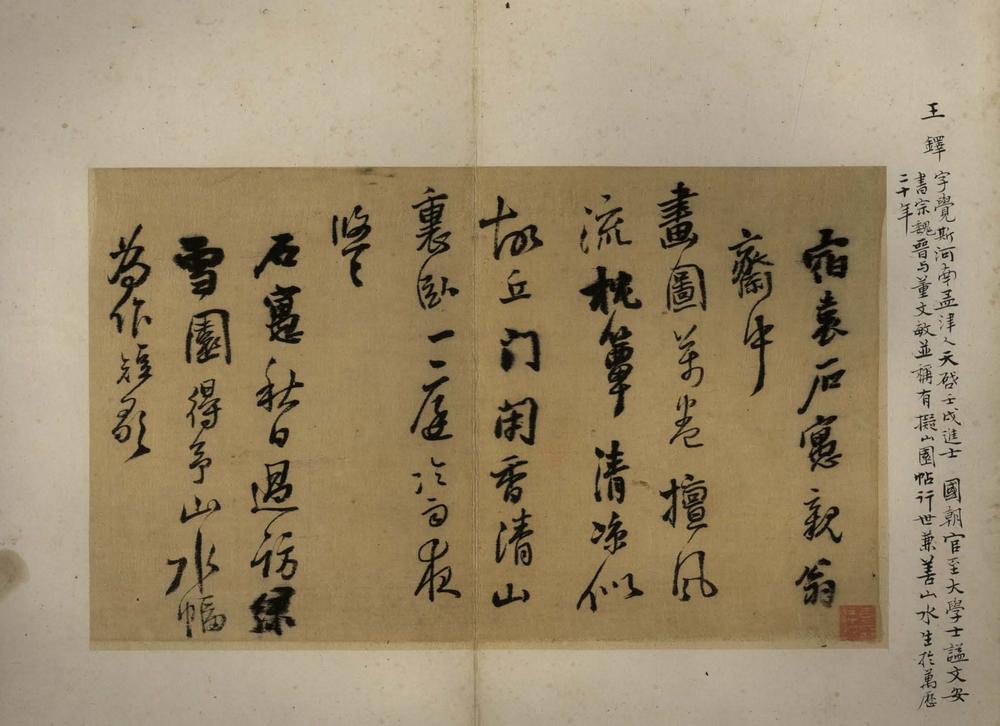 王鐸
字覺斯河南孟津人天啓壬戌進士 國朝官至大學士謚文安
書宗魏晉与董文敏並稱有擬山園帖行世兼善山水生於萬曆
二十年
宿袁石寓親翁
齋中
畫圖萬卷擅風
流枕簟清涼似
故丘門閑香清山
裏臥一庭冷雨夜
悠〻
石寓秋日過訪
雪園得予山水幅
為作短歌